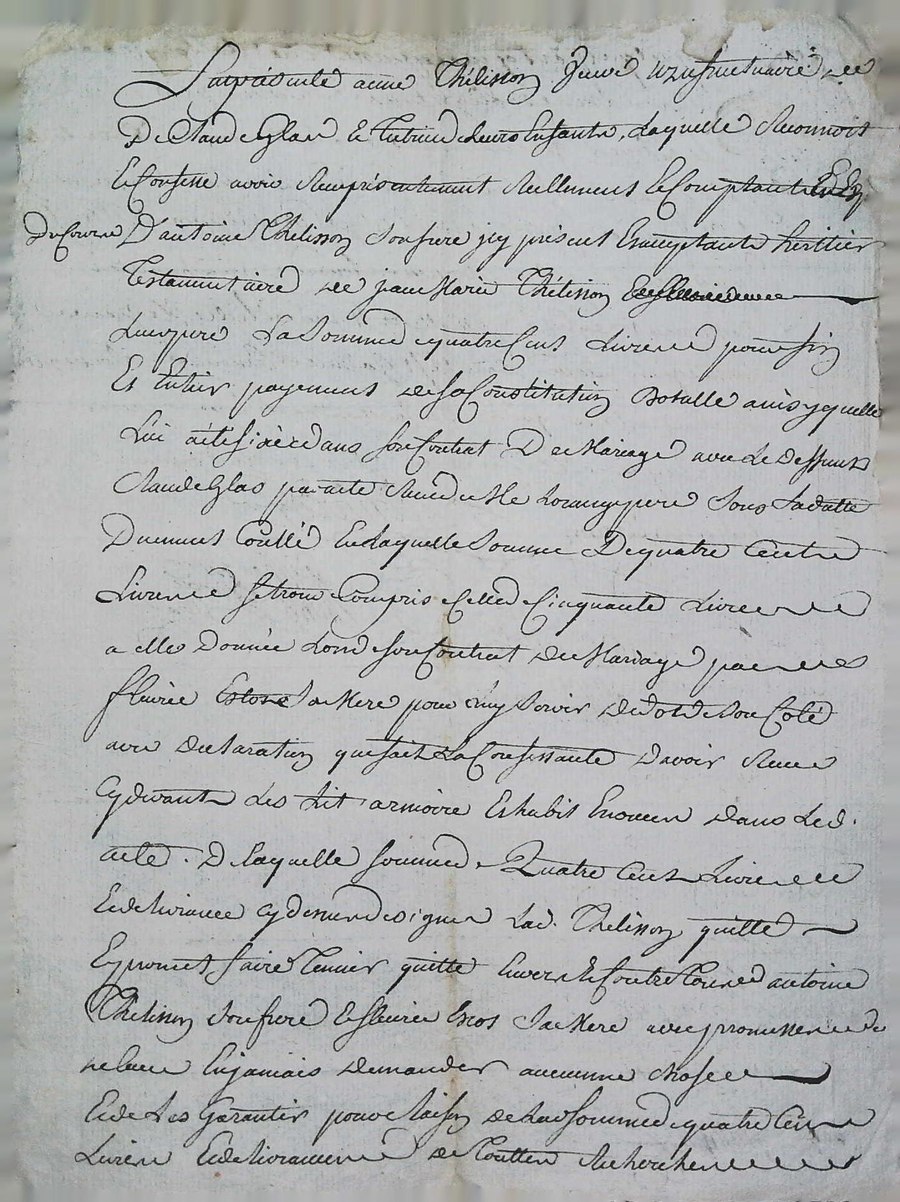 anne Thelisson veuve usufructuaire de
De Claude Glas Et Tutrice de leurs Enfants, Laquelle Reconnoit
Et Confesse avoir Receu présentement Reellement Et Comptant
Du Couren D'antoine Thelisson Son frere icy présent Et acceptant heritier
Testamentaire de jean Marie Thélisson
Leur pere La Somme de quatre Cens Livres pour fin
Et Entier payement de sa Constitution Dotalle a icelle
Lui faitte dans Son Contrat De Mariage avec Le Deffunt
Claude Glas par acte Receu de Me pere Sous Sa datte
Duement Conllé En Laquelle Somme De quatre Cents
Livres Se trouve Compris Celle de Cinquante Livres
a elle Donnée Lors de Son Contrat de Mariage par
fleurie Sa Mere pour luy Servir de dot de Son Coté
avec declaration que fait La Confessante d'avoir Receu
Cy devant Les Lit armoire Et habit Enoncés dans Led.
acte. De laquelle Somme de Quatre Cens Livres
Et delivrance cy dessus Lad. Thelisson quitte
Et promet faire Tenir quitte Envers Et Contre Tous antoine
Thelisson Son frere Et fleurie Escos Sa Mere avec promesse de
ne leur En jamais demander aucune chose
Et de Les Garantir pour Raison de Lad Somme de quatre Cens
Livres Et delivrance de Touttes Recherches